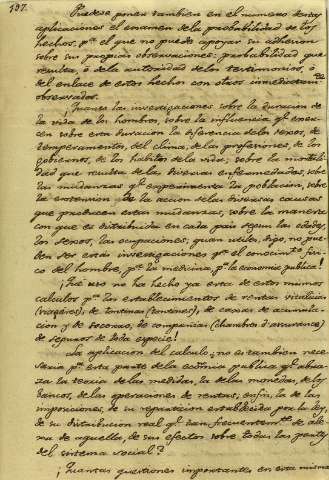 197.
Puedese poner tambien en el numero de estas
aplicaciones el examen de la probabilidad de los
hechos, pa. el que no puede apoyar su adhesion
sobre sus propias observaciones; probabilidad que
resulta, ó de la autoridad de los testimonios, ó
del enlace de estos hechos con otros inmediatamte.
observados.
¡Quantas investigaciones sobre la duracion de
la vida de los hombres, sobre la influencia qe. exer-
cen sobre esta duracion la diferencia de los sexos, de
temperamentos, del clima, de las profesiones, de los
gobiernos, de los habitos de la vida; sobre la morta-
lidad que resulta de las diversas enfermedades, sobre
las mudanzas qe. experimenta la poblacion, sobre
la extension de la accion de las diversas causas
que producen estas mudanzas, sobre la manera
con que es distribuida en cada pais segun las edades,
los sexos, las ocupaciones; quan utiles, digo, no pue-
den ser estas investigaciones pa. el conocimto. fisi-
co del hombre, pa. la medicina, pa. la economia publica!
¡Que uso no ha hecho ya esta de estos mismos
calculos pa. los establecimientos de rentas vitalicias
(viageres), de tontinas (tontines), de caxas de acumula-
cion y de socorros, de compañias (chambres d'assurance)
de seguros de toda especie!
¿La aplicacion del calculo, no es tambien nece-
saria pa. esta parte de la economia publica qe. abra-
za la teoria de las medidas, la de las monedas, de los
bancos, de las operaciones de rentas, enfin, la de las
imposiciones, de su reparticion establecida por la ley,
de su distribucion real qe. tan frequentemte. se ale-
xa de aquella, de sus efectos sobre todas las partes
del sistema social?
¡Quantas questiones importantes en esta misma